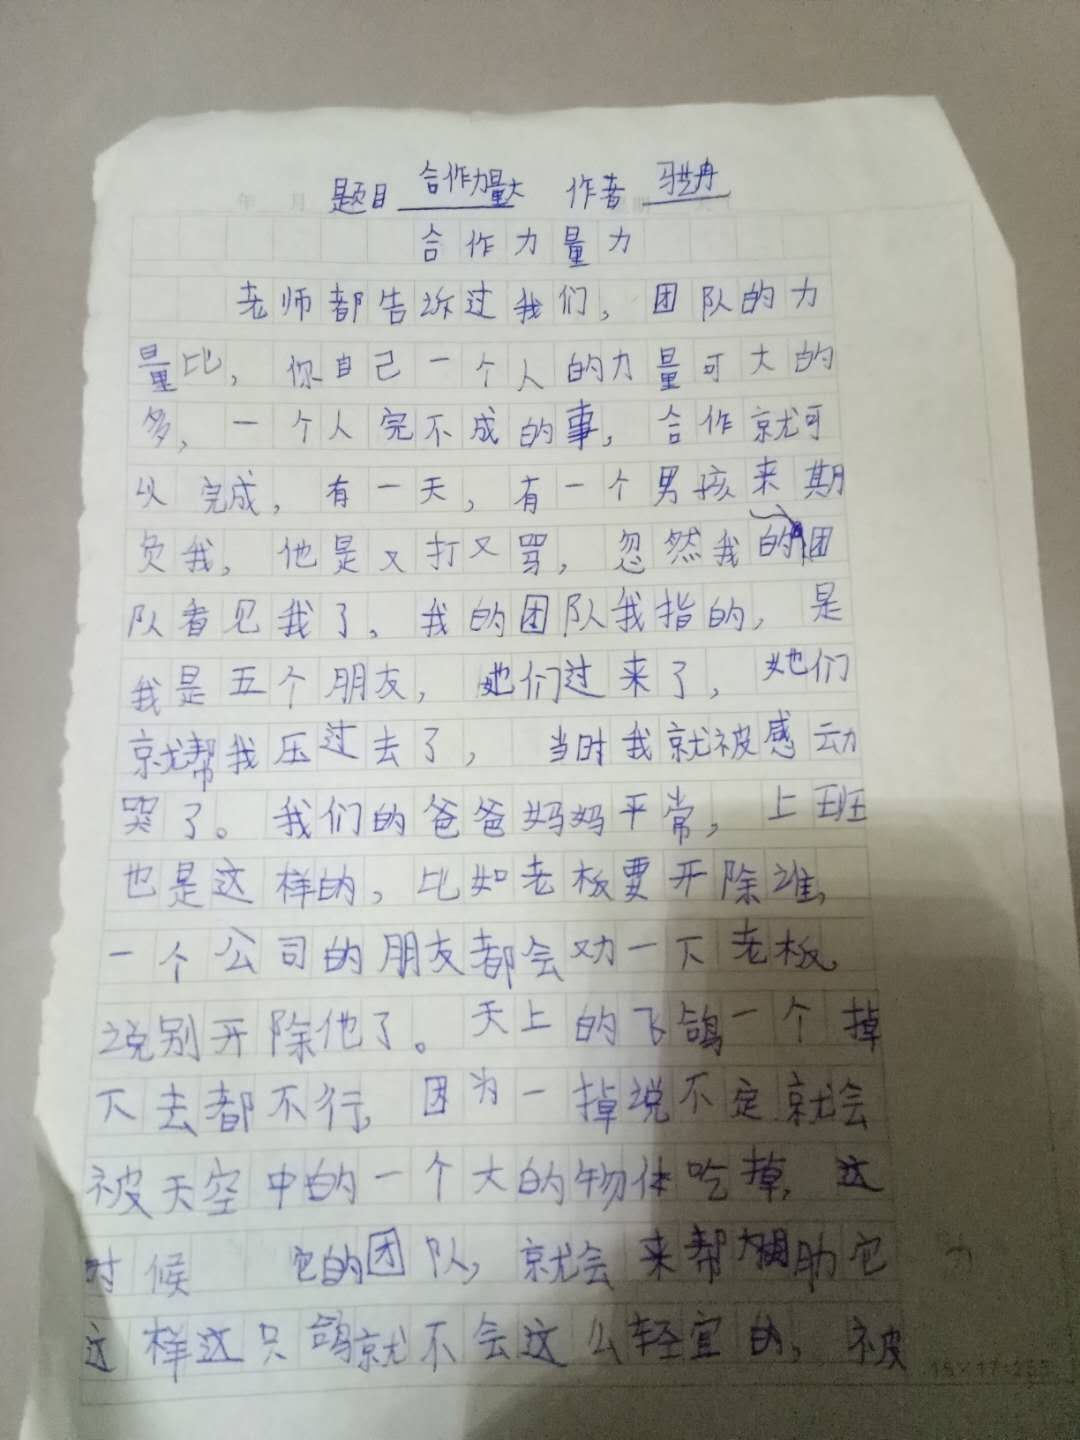 题目 合作力量大 作者
合作力量力
老师都告诉过我们，团队的力
量比，你自己一个人的力量可大的
多，一个人完不成的事，合作就可
以完成，有一天，有一个男孩来期
负我，他是又打又骂，忽然我的团
队看见我了，我的团队我指的，是
我是五个朋友，她们过来了，她们
就帮我压过去了，当时我就被感动
哭了。我们的爸爸妈妈平常，上班
也是这样的，比如老板要开除谁，
一个公司的朋友都会劝一下老板，
说别开除他了。天上的飞鸽一个掉
下去都不行，因为一掉说不定就会
被天空中的一个大的物体吃掉，这
时候 它的团队，就会来帮助它
这样这只鸽就不会这么轻宜的，被